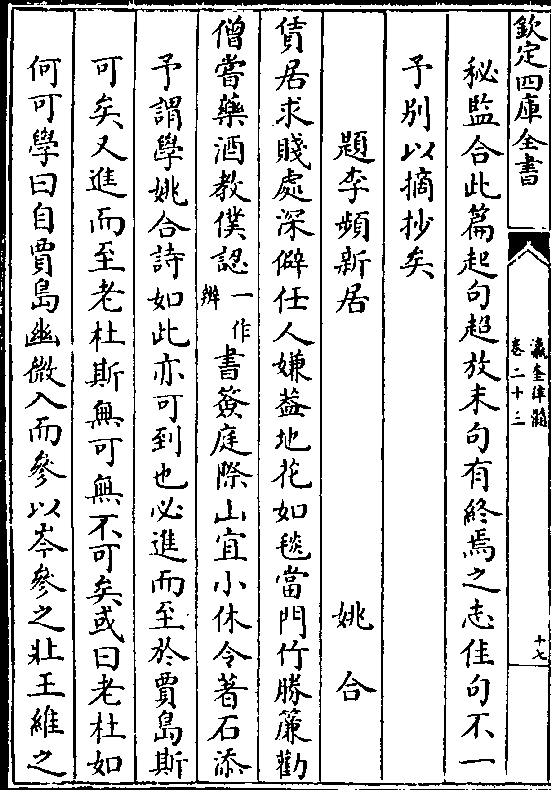 欽定四庫全書
瀛奎律髓
卷二十三
十七
秘監合此篇起句超放末句有終焉之志佳句不一
予別以摘抄矣
題李頻新居
姚合
賃居求賤處深僻任人嫌葢地花如毯當門竹勝簾勸
僧嘗藥酒教僕認一作辨書簽庭際山宜小休令著石添
予謂學姚合詩如此亦可到也必進而至於賈島斯
可矣又進而至老杜斯無可無不可矣或曰老杜如
何可學曰自賈島幽微入而參以岑參之壯王維之